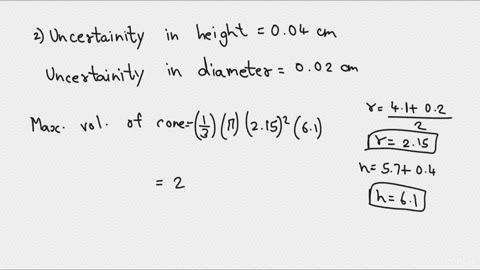 2) Uncertainity in height = 0.04 cm
Uncertainity in diameter = 0.02 cm
Max. vol. of cone = (1/3) (π) (2.15)² (6.1)
= 2
r = 4.1 + 0.2 / 2
r = 2.15
h = 5.7 + 0.4
h = 6.1